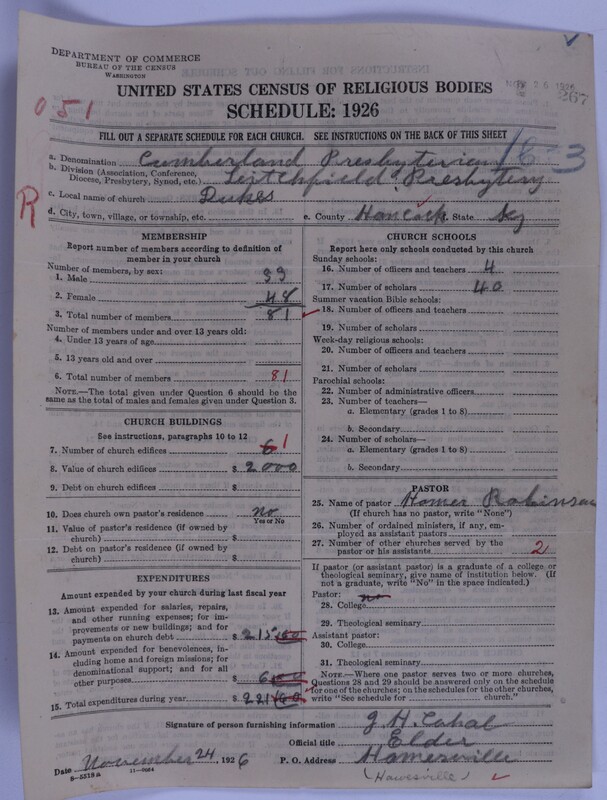 DEPARTMENT OF COMMERCE
BUREAU OF THE CENSUS
WASHINGTON
UNITED STATES CENSUS OF RELIGIOUS BODIES
SCHEDULE: 1926
267
051
FILL OUT A SEPARATE SCHEDULE FOR EACH CHURCH. SEE INSTRUCTIONS ON THE BACK OF THIS SHEET
a. Denomination Cumberland Presbyterian 18-3
b. Division (Association, Conference, Diocese, Presbytery, Synod, etc.) Leitchfield Presbytery
R
c. Local name of church Dukes
d. City, town, village, or township, etc. e. County Hancock f. State Ky
MEMBERSHIP
Report number of members according to definition of member in your church
Number of members, by sex:
1. Male 33
2. Female 48
3. Total number of members 81
Number of members under and over 13 years old:
4. Under 13 years of age
5. 13 years old and over
6. Total number of members 81
NOTE.—The total given under Question 6 should be the same as the total of males and females given under Question 3.
CHURCH BUILDINGS
See instructions, paragraphs 10 to 12
7. Number of church edifices 1
8. Value of church edifices $ 2000
9. Debt on church edifices $
10. Does church own pastor's residence? no
Yes or No
11. Value of pastor's residence (if owned by church) $
12. Debt on pastor's residence (if owned by church) $
EXPENDITURES
Amount expended by your church during last fiscal year
13. Amount expended for salaries, repairs, and other running expenses; for improvements or new buildings; and for payments on church debt $ 215 00
14. Amount expended for benevolences, including home and foreign missions; for denominational support; and for all other purposes $ 6 00
15. Total expenditures during year $ 221 00
CHURCH SCHOOLS
Report here only schools conducted by this church
Sunday schools:
16. Number of officers and teachers 4
17. Number of scholars 40
Summer vacation Bible schools:
18. Number of officers and teachers
19. Number of scholars
Week-day religious schools:
20. Number of officers and teachers
21. Number of scholars
Parochial schools:
22. Number of administrative officers
23. Number of teachers—
a. Elementary (grades 1 to 8)
b. Secondary
24. Number of scholars—
a. Elementary (grades 1 to 8)
b. Secondary
PASTOR
25. Name of pastor Homer Robinson
(If church has no pastor, write "None")
26. Number of ordained ministers, if any, employed as assistant pastors
27. Number of other churches served by the pastor or his assistants 2
If pastor (or assistant pastor) is a graduate of a college or theological seminary, give name of institution below. (If not a graduate, write "No" in the space indicated.)
Pastor: no
28. College
29. Theological seminary
Assistant pastor:
30. College
31. Theological seminary
NOTE.—Where one pastor serves two or more churches, Questions 28 and 29 should be answered only on the schedule for one of the churches; on the schedules for the other churches, write "See schedule for church."
Signature of person furnishing information J. H. Cabal
Official title Elder
Date November 24, 1926 P. O. Address Homersville
8-5518a 11-9064
(Hawesville)